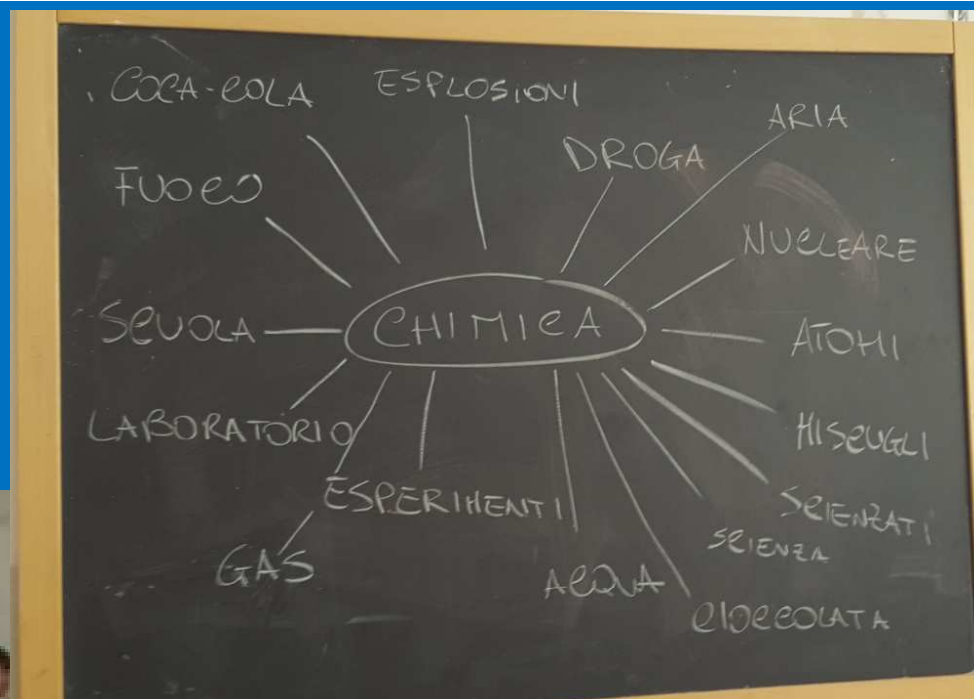 COCA-COLA
ESPLOSIONI
DROGA
ARIA
FUOCO
NUCLEARE
SCUOLA
CHIMICA
ATOMI
LABORATORIO
MISCUGLI
ESPERIMENTI
SCIENZATI
GAS
ACQUA
SCIENZA
CIOCCOLATA